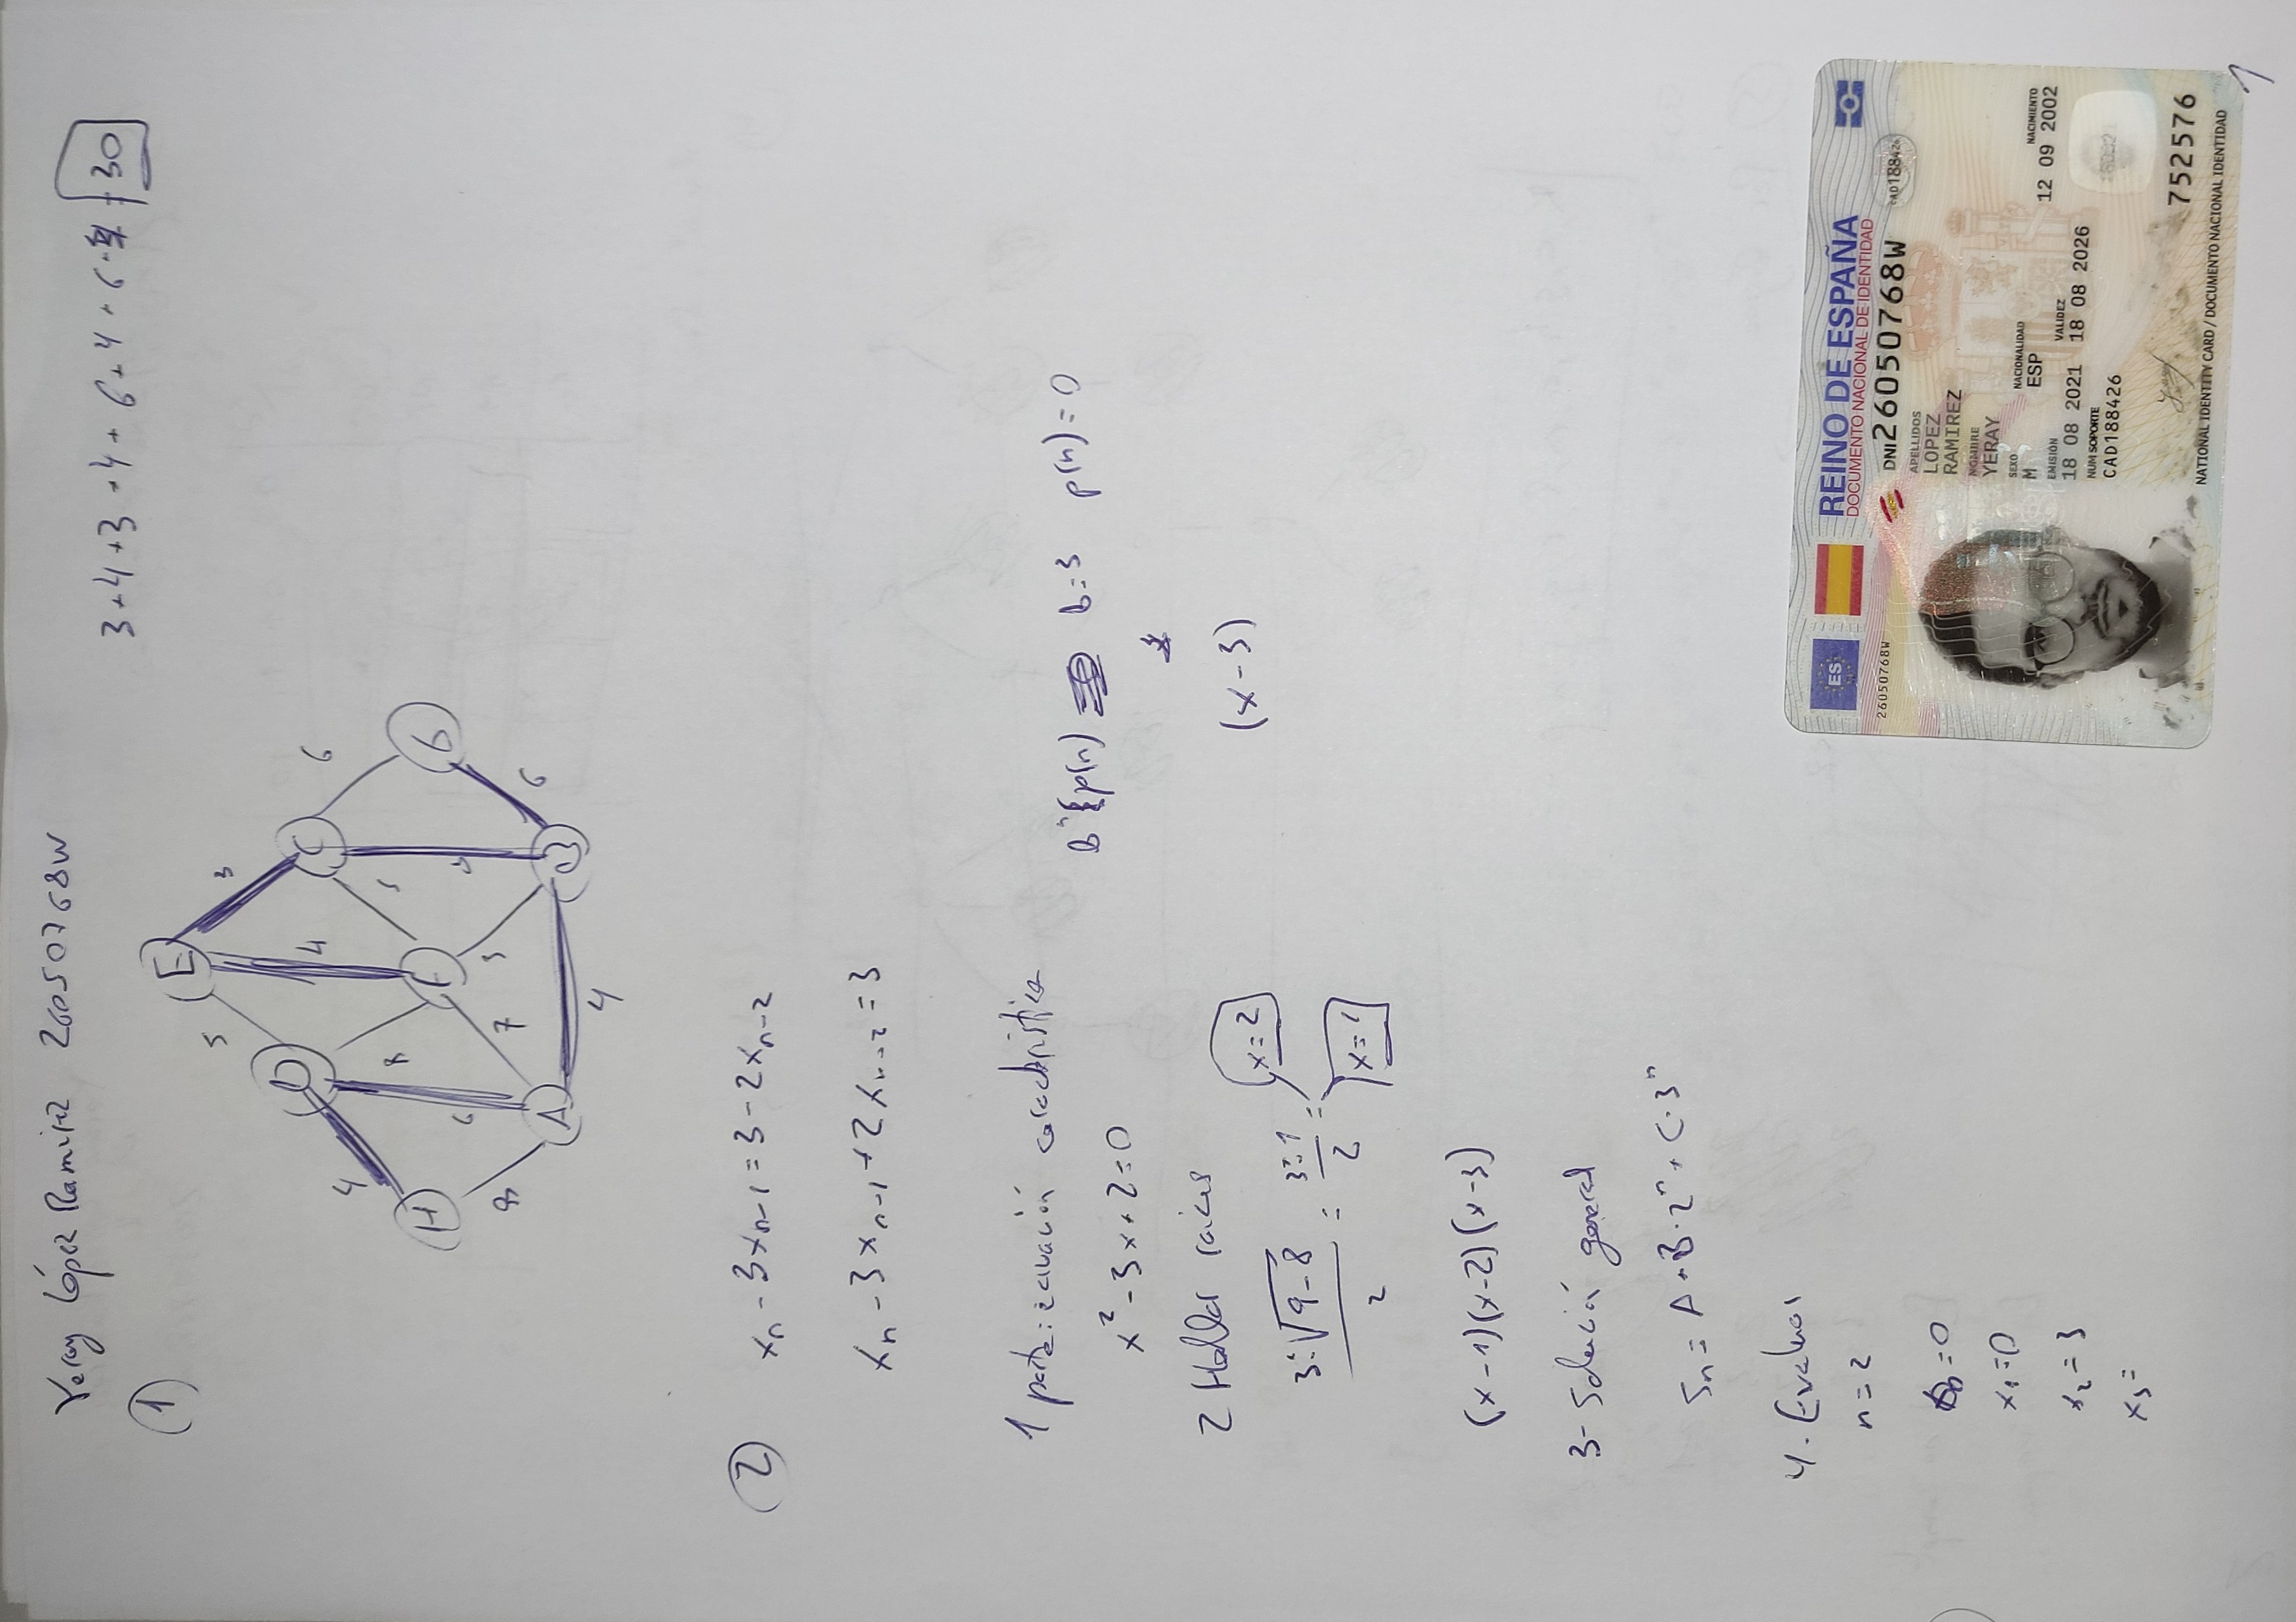 Yeray López Ramirez 26050768W
3+4+3+4+6+4+6 = 30
1
E
5
3
D
C
4
4
6
H
8
F
5
G
6
8
7
5
6
A
B
4
2
xn - 3xn-1 = 3 - 2xn-2
xn - 3xn-1 + 2xn-2 = 3
1 parte: ecuación característica
B^n p(n) b=3 p(n)=0
x² - 3x + 2 = 0
(x-3)
2 Hallar raices
3±√9-8 / 2 = 3±1 / 2 =
x=2
x=1
(x-1)(x-2)(x-3)
3- Solución general
Sn = A + B·2^n + C·3^n
4. Evaluar
n=2
=0
x1=0
x2=3
x3=
ES
REINO DE ESPAÑA
DOCUMENTO NACIONAL DE IDENTIDAD
26050768W
DNI 26050768W
CAD188426
APELLIDOS
LOPEZ
RAMIREZ
NOMBRE
YERAY
SEXO
M
NACIONALIDAD
ESP
NACIMIENTO
12 09 2002
EMISIÓN
18 08 2021
VALIDEZ
18 08 2026
NUM SOPORTE
CAD188426
752576
NATIONAL IDENTITY CARD / DOCUMENTO NACIONAL IDENTIDAD
1